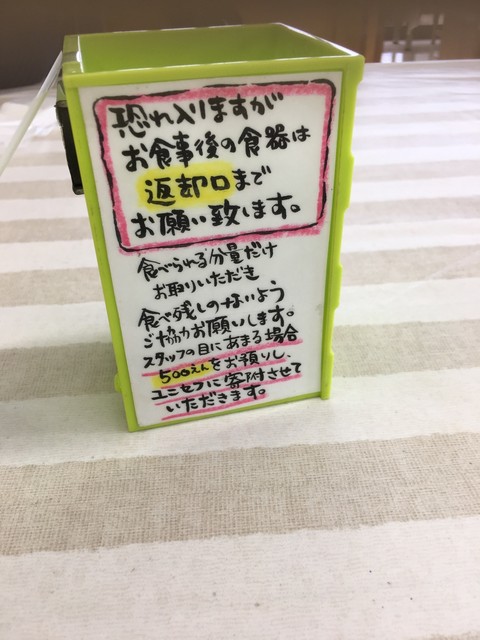 恐れ入りますが
お食事後の食器は
返却口まで
お願い致します。
食べられる分量だけ
お取りいただき
食べ残しのないよう
ご協力お願いします。
スタッフの目にあまる場合
500えんをお預りし、
ユニセフに寄附させて
いただきます。